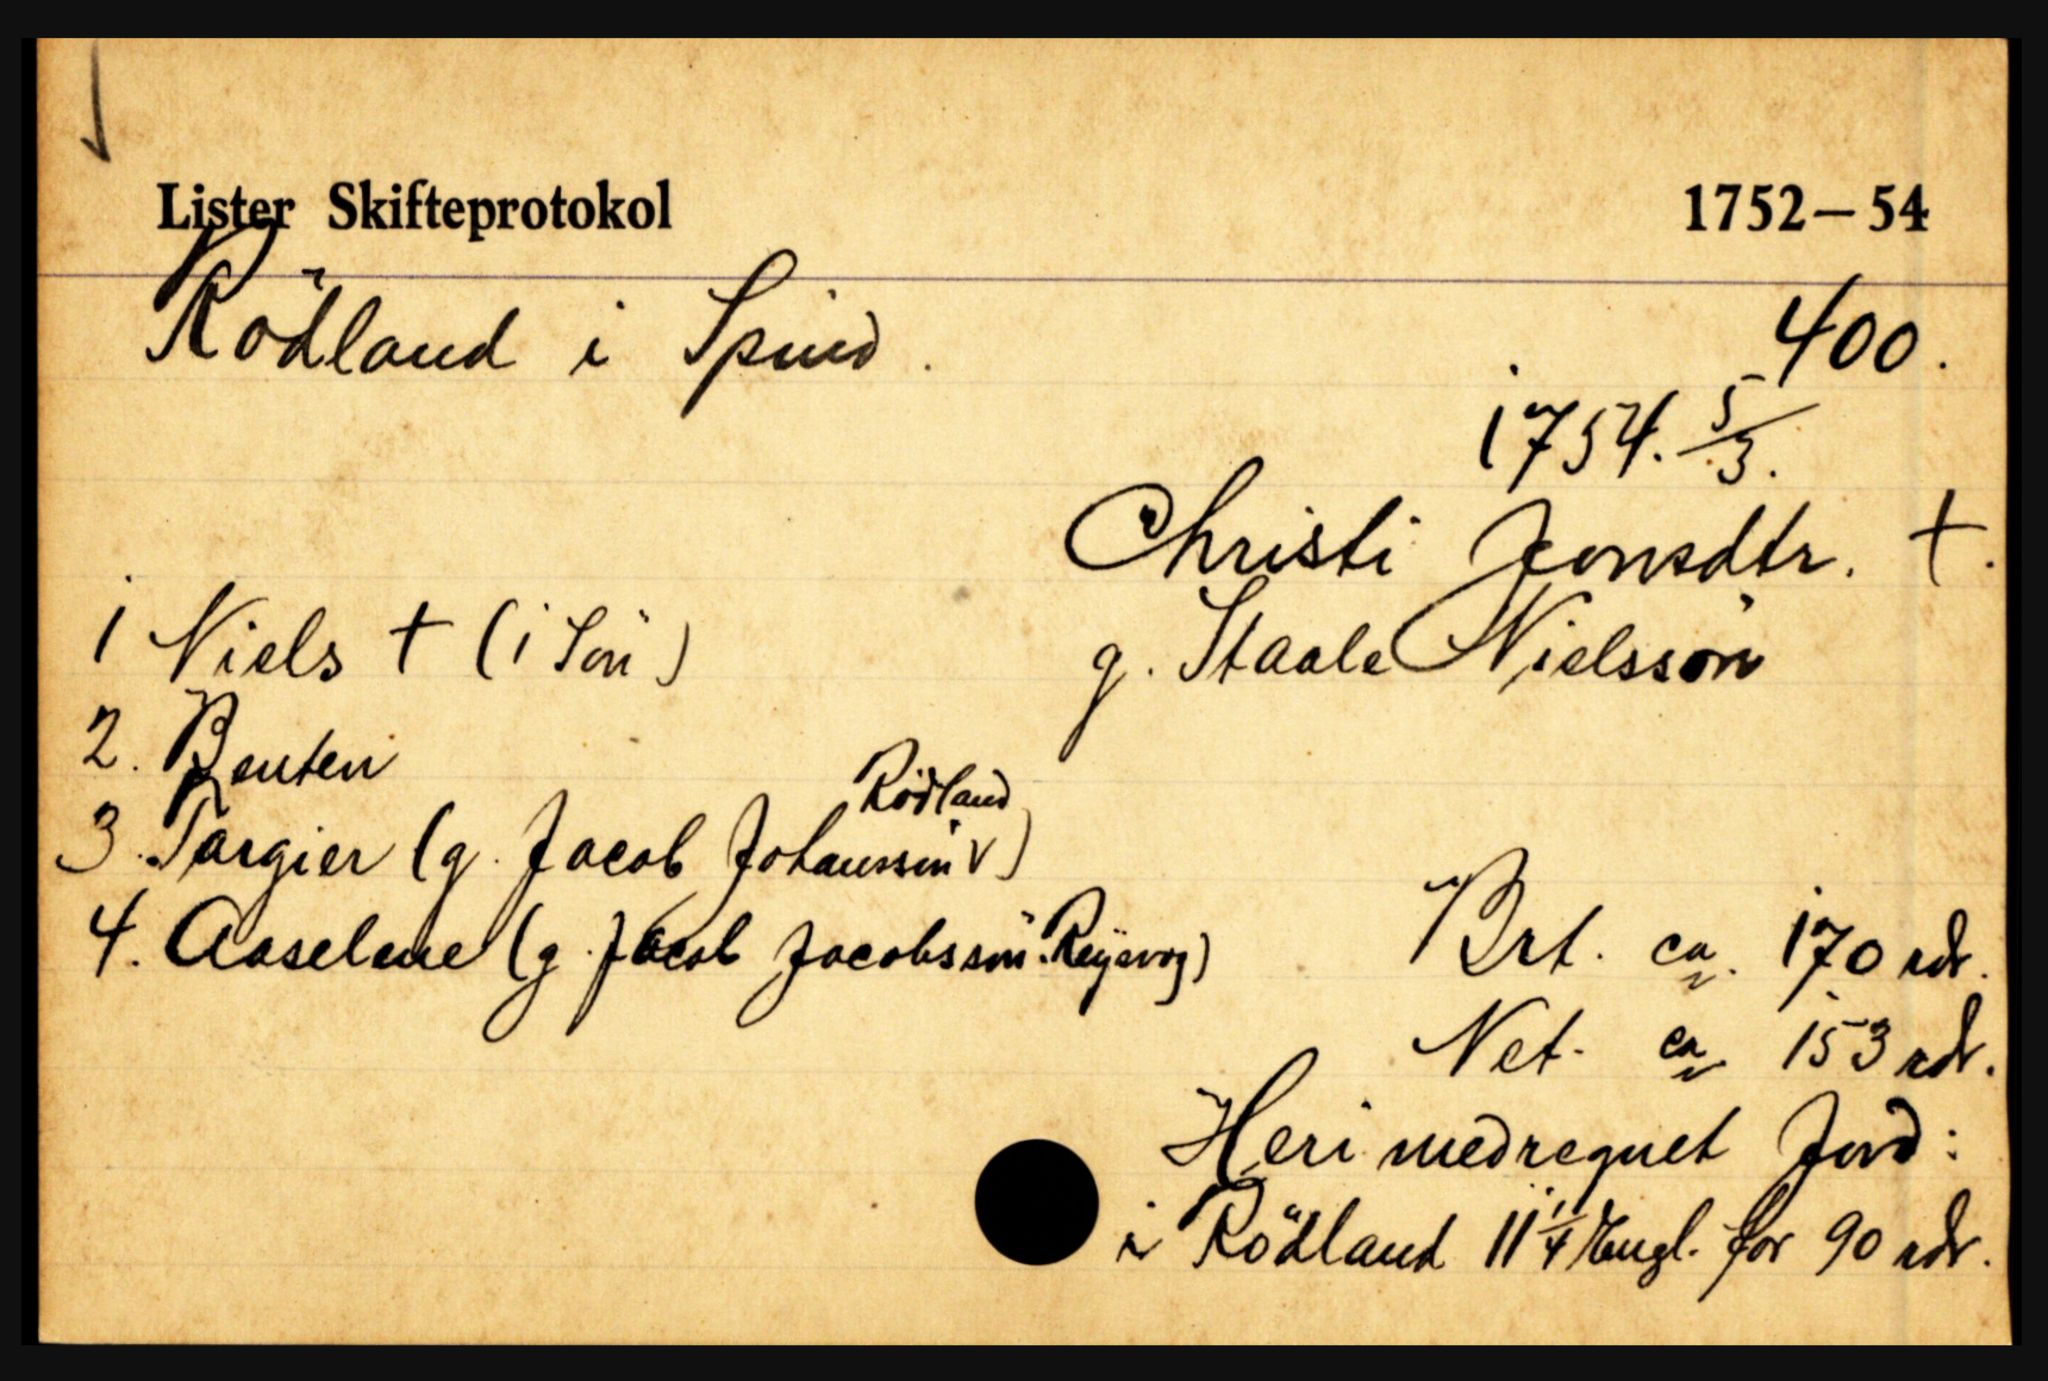 Lister Skifteprotokol 1752–54
Rödland i Spind. 400.
1754. 5/3.
Christi Jonsdtr. †.
g. Staale Nielssön
1 Niels † (1 Sön)
2. Benten
3. Targier (g. Jacob Johanssön Rödland)
4. Aaselene (g. Jacob Jacobssön.)
Brt. ca. 170 rdr.
Net. ca. 153 rdr.
Heri medregnet Jord:
i Rödland 11 1/4 Engl. for 90 rdr.